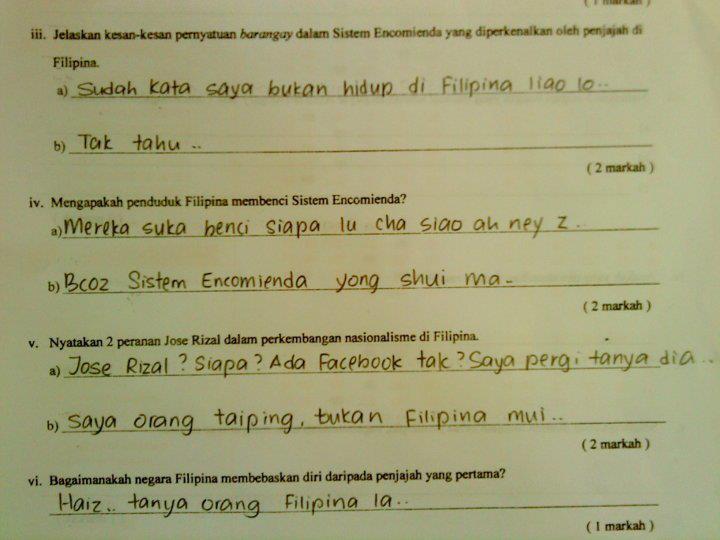 ( 1 markah )
iii. Jelaskan kesan-kesan pernyatuan barangay dalam Sistem Encomienda yang diperkenalkan oleh penjajah di
Filipina.
a) Sudah kata saya bukan hidup di Filipina liao lo..
b) Tak tahu ..
( 2 markah )
iv. Mengapakah penduduk Filipina membenci Sistem Encomienda?
a) Mereka suka benci siapa lu cha siao ah ney z .
b) Bcoz Sistem Encomienda yong shui ma.
( 2 markah )
v. Nyatakan 2 peranan Jose Rizal dalam perkembangan nasionalisme di Filipina.
a) Jose Rizal ? Siapa ? Ada Facebook tak ? Saya pergi tanya dia ..
b) saya orang taiping, bukan Filipina mui ..
( 2 markah )
vi. Bagaimanakah negara Filipina membebaskan diri daripada penjajah yang pertama?
Haiz.. tanya orang Filipina la..
( 1 markah )